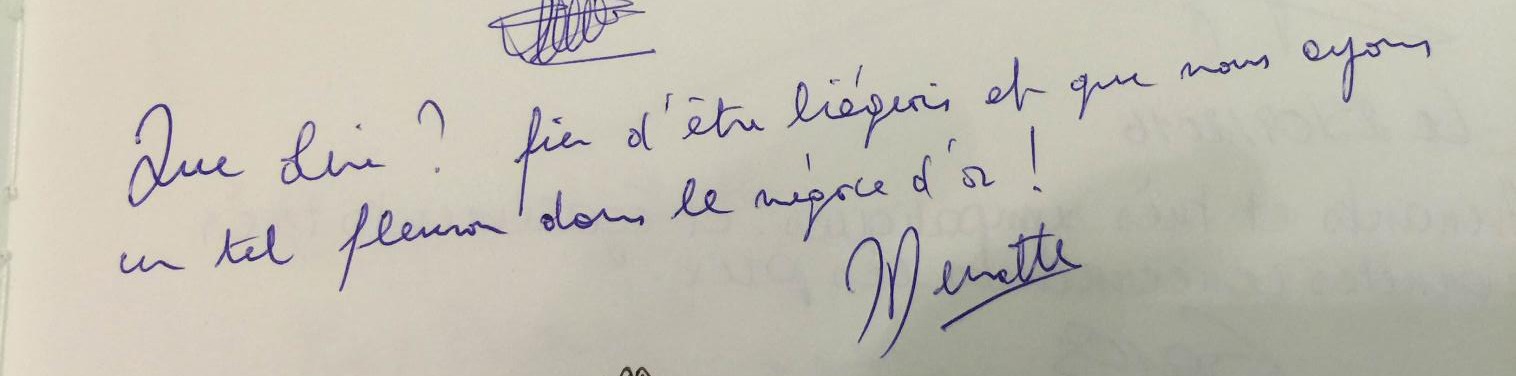 Que dire ? fier d'être liégeois et que nous ayons
un tel fleuron dans le négoce d'or !